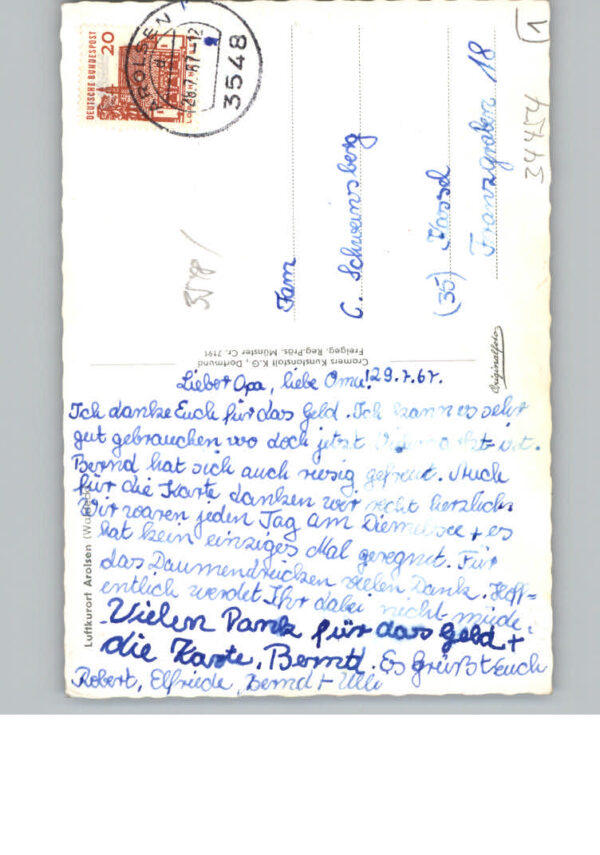 DEUTSCHE BUNDESPOST
20
AROLSEN
28.7.67-12
3548
1
34454
Fam
C. Schweinsberg
(35) Kassel
Franzgraben 18
Cramers Kunstanstalt K.G., Dortmund
Freigeg. Reg.Präs. Münster Cr. 7191
Originalfoto
Luftkurort Arolsen
Lieber Opa, liebe Oma! 29.7.67.
Ich danke Euch für das Geld. Ich kann es sehr
gut gebrauchen wo doch jetzt ist.
Bernd hat sich auch riesig gefreut. Auch
für die Karte danken wir recht herzlich.
Wir waren jeden Tag am Diemelsee + es
hat kein einziges Mal geregnet. Für
das Daumendrücken vielen Dank. Hoff=
entlich werdet Ihr dabei nicht müde.
Vielen Dank für das Geld +
die Karte, Bernd. Es grüßt Euch
Robert, Elfriede, Bernd + Ulli